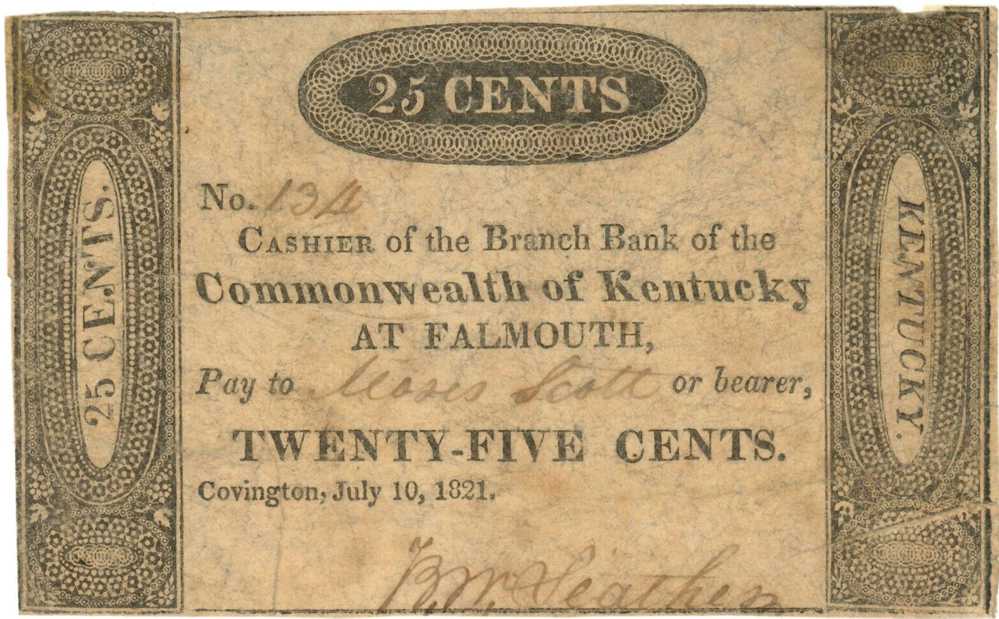 25 CENTS
25 CENTS.
No. 134
CASHIER of the Branch Bank of the
Commonwealth of Kentucky
AT FALMOUTH,
Pay to Moses Scott or bearer,
TWENTY-FIVE CENTS.
Covington, July 10, 1821.
B. W. Leathers
KENTUCKY.